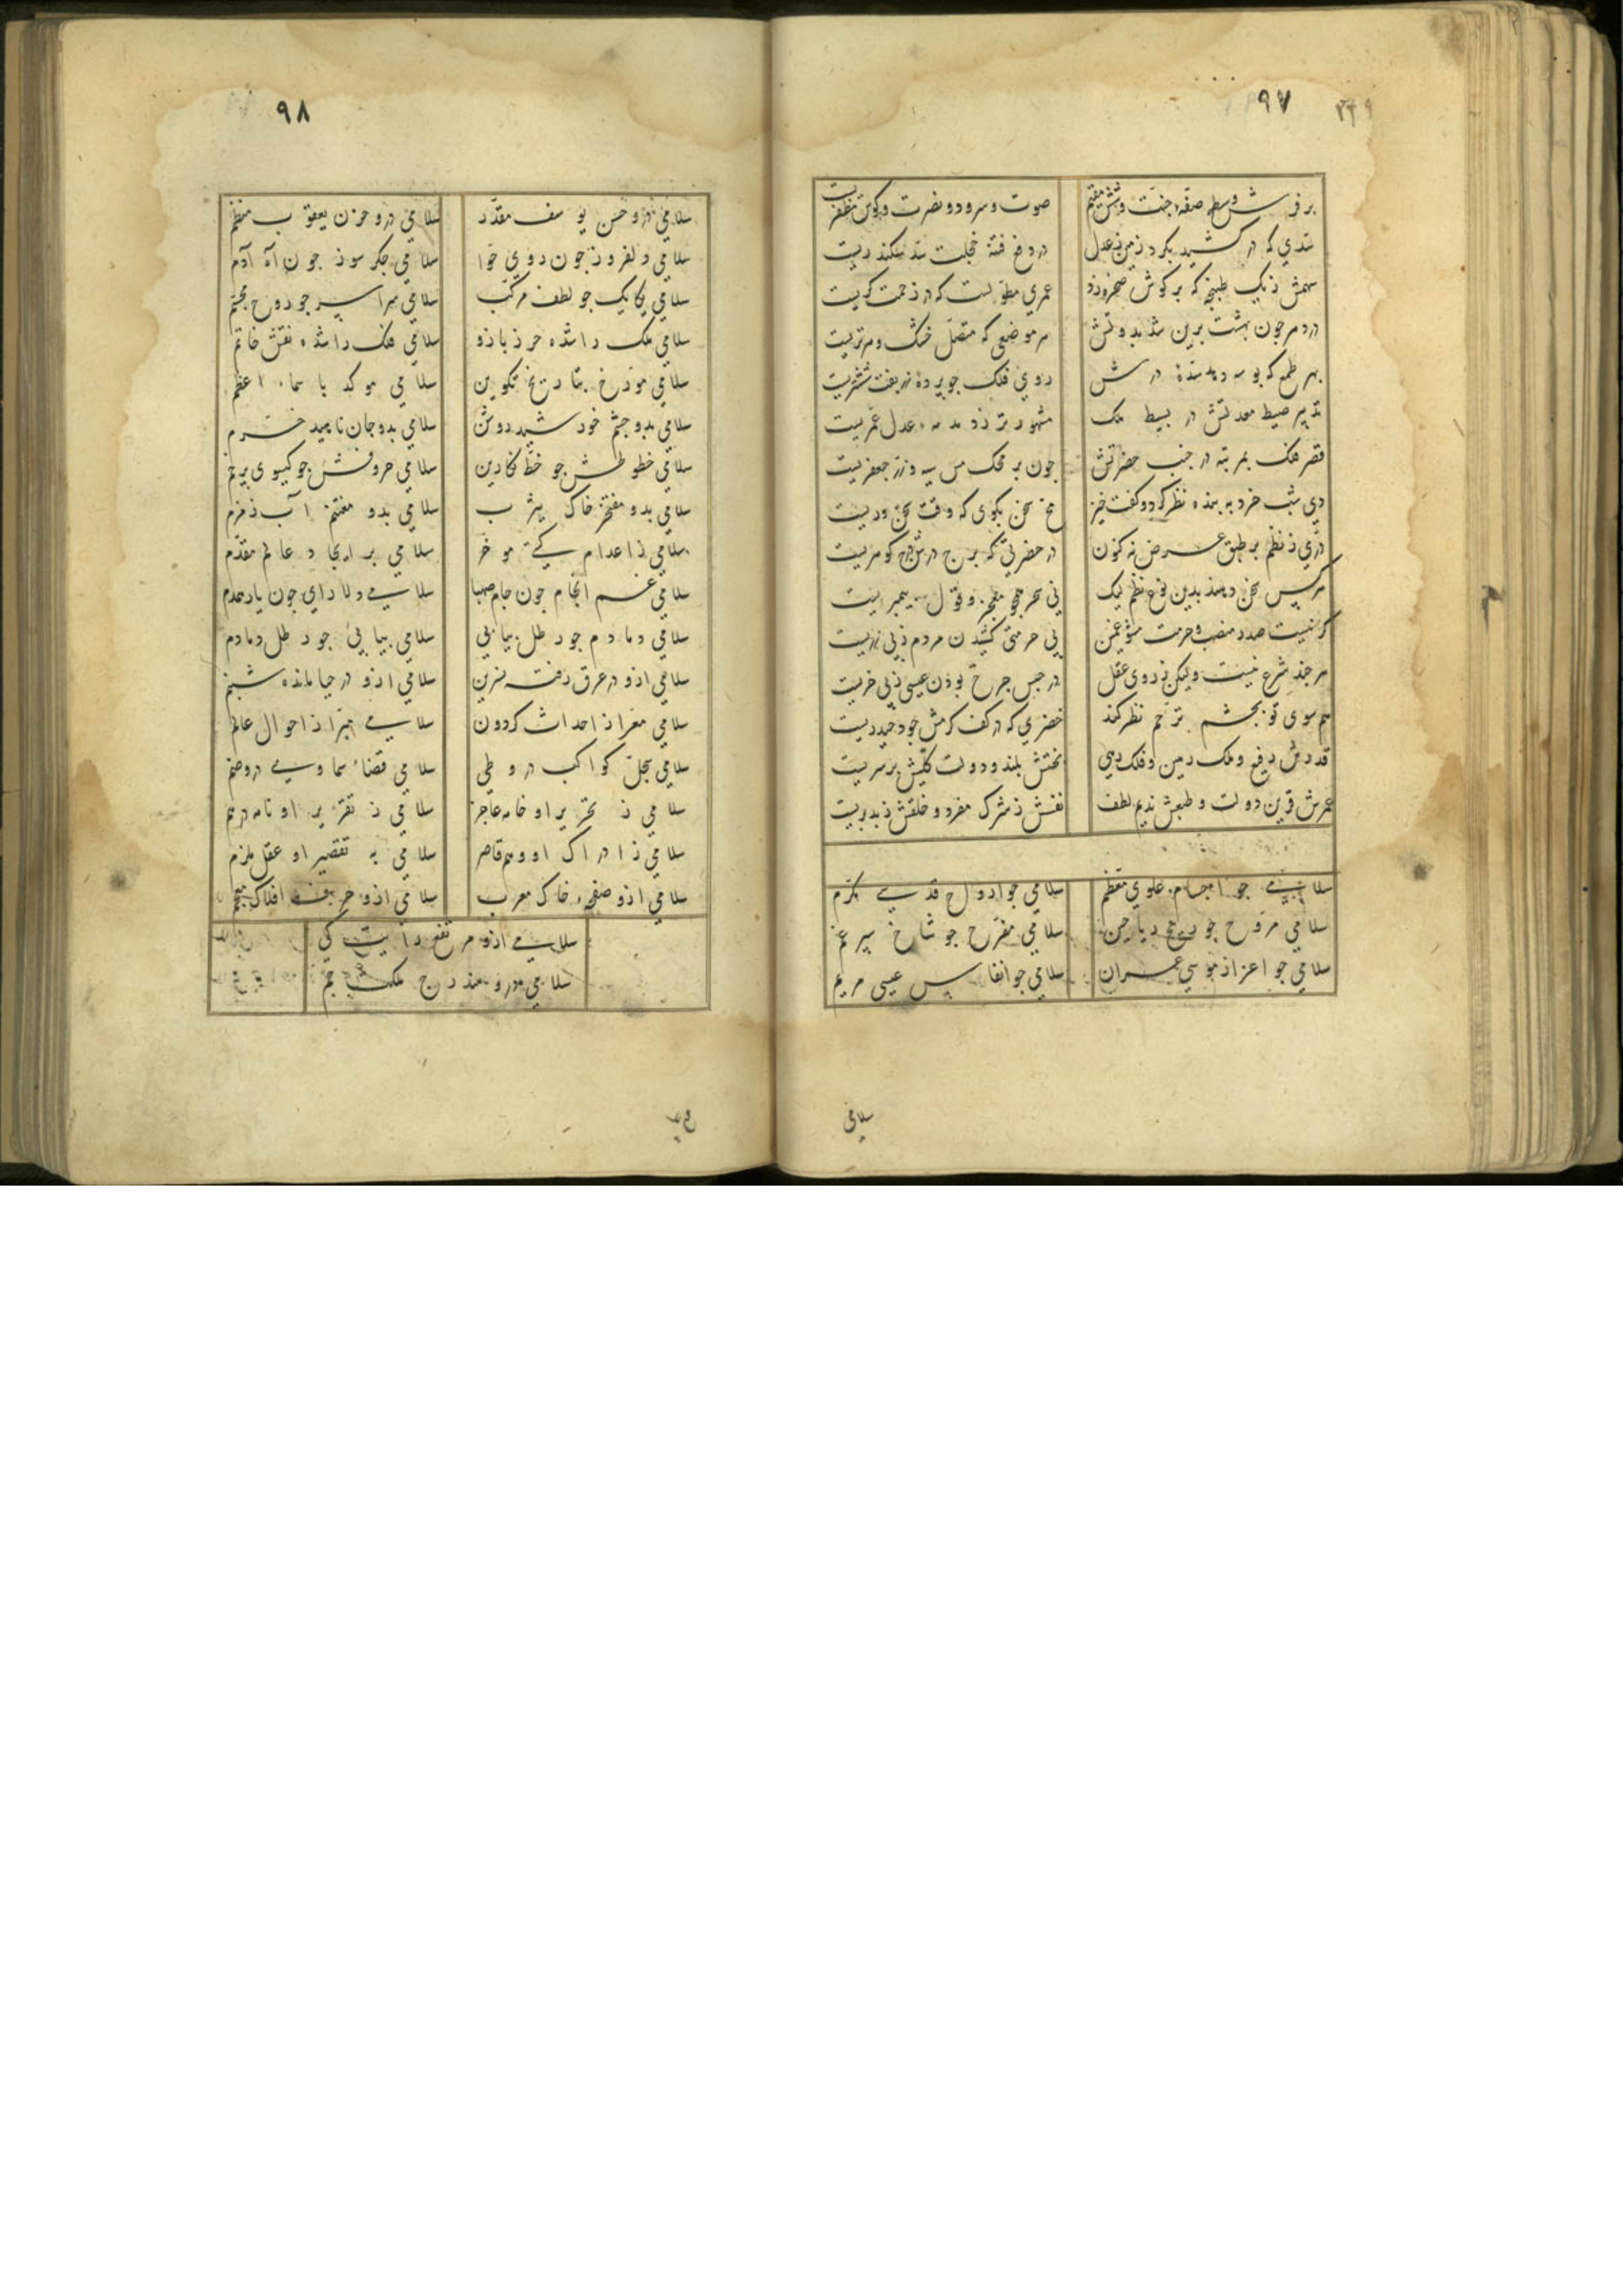 ۹۷
بر فرش وسط صفه جنت وشش مقیم
صوت وسرود ونصرت وکوی مظفریست
سدی که در کشید بکرد زمین ز عدل
در دفع فتنه خجلت سد سکندریست
سهمش زیک طپنچه که بر کوش
عمری مطول است که در زحمت کریست
در دهر جون بهشت برین شد بدولتش
هر موضعی که متصل خشک وهر تریست
بهر طمع که بوسه دهد سدهٔ درش
روی فلک جو پردهٔ زربفت ششتریست
تدبیر صیط معدلتش در بسیط ملک
مشهورتر ز عدل عمریست
قصر فلک بمرتبه در جنب حضرتش
جون بر محک مس سیه وزر جعفریست
دی شب خرد به بنده نظر کرد وکفت خیز
مخ سخن بکوی که وقت سخن وریست
دری ز نظم بر طبق عرض نه کنون
در حضرتی که برج درش درج کوهریست
هرکس سخن دهند بدین نوع نظم لیک
نی سحر معجز وقول پیمبریست
کر نیست صدر منصب وحرمت
بی حرمتی کشیدن مردم ز بی زریست
هر جند شرع نیست ولیکن ز روی عقل
در حبس جرخ بودن عیسی ز بی خریست
هم سوی تو بجشم ترحم نظر کند
خضری که در کف کرمش جود حیدریست
قدرش رفیع وملک رهین وفلک رهی
بختش بلند ودولت کلیش بر سریست
عمرش قرین دولت وطبعش ندیم لطف
نفسش ز شرک مفرد وخلقش ز بد بریست
سلامی جو اجسام علوی معظم
سلامی جو ارواح قدسی مکرم
سلامی مروح جو ریاحین
سلامی مفرح جو شاخ سپرغم
سلامی جو اعزاز موسی عمران
سلامی جو انفاس عیسی مریم
سلامی
۹۸
سلامی درو حسن یوسف مقدر
سلامی درو حزن یعقوب منظم
سلامی دلفروز جون روی حوا
سلامی جکر سوز جون آه آدم
سلامی یکایک جو لطف مرکب
سلامی سراسر جو روح مجسم
سلامی ملک را شده حرز بازو
سلامی فلک را شده نقش خاتم
سلامی مورخ بتاریخ تکوین
سلامی موکد باسماء اعظم
سلامی بدو جشم خورشید روشن
سلامی بدو جان ناهید خرم
سلامی خطوطش جو خط نکارین
سلامی حروفش جو کیسوی پرخم
سلامی بدو مفتخر خاک یثرب
سلامی بدو مغتنم آب زمزم
سلامی ز اعدام کیتی موخر
سلامی بر ایجاد عالم مقدم
سلامی غم انجام جون جام صهبا
سلامی دلارای جون یار همدم
سلامی دمادم جو رطل بیابی
سلامی بیابی جو رطل دمادم
سلامی ازو در عرق رفته نسرین
سلامی ازو در حیا مانده شبنم
سلامی معرا ز احداث کردون
سلامی مبرا ز احوال عالم
سلامی سجل کواکب درو طی
سلامی قضاء سماوی درو ضم
سلامی ز تحریر او خامه عاجز
سلامی ز تقریر او نامه درهم
سلامی ز ادراک او وهم قاصر
سلامی به تقصیر او عقل ملزم
سلامی ازو صفحهٔ خاک معرب
سلامی ازو حرف افلاک معجم
سلامی ازو مرتفع رایت کی
سلامی درو مندرج ملکت جم